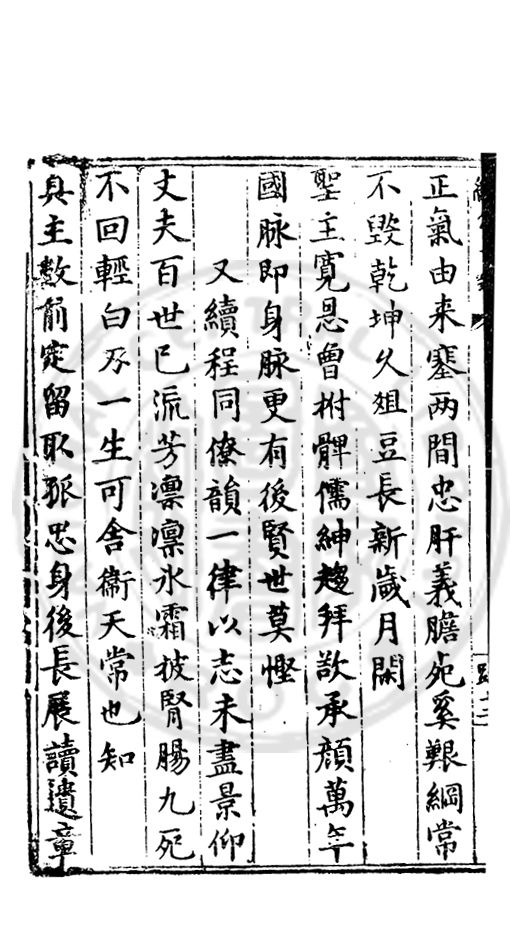 正氣由来塞两間忠肝義膽死奚艱綱常
不毀乾坤乆俎豆長新歲月閑
聖主寛恩曾拊髀儒紳趨拜歆承顔萬年
國脉即身脉更有後賢世莫慳
又續程同僚韻一律以志未盡景仰
丈夫百世已流芳凛凛氷霜彼腎腸九死
不回輕白刄一生可舍衞天常也知
真主数前定留取孤忠身後長展讀遺章